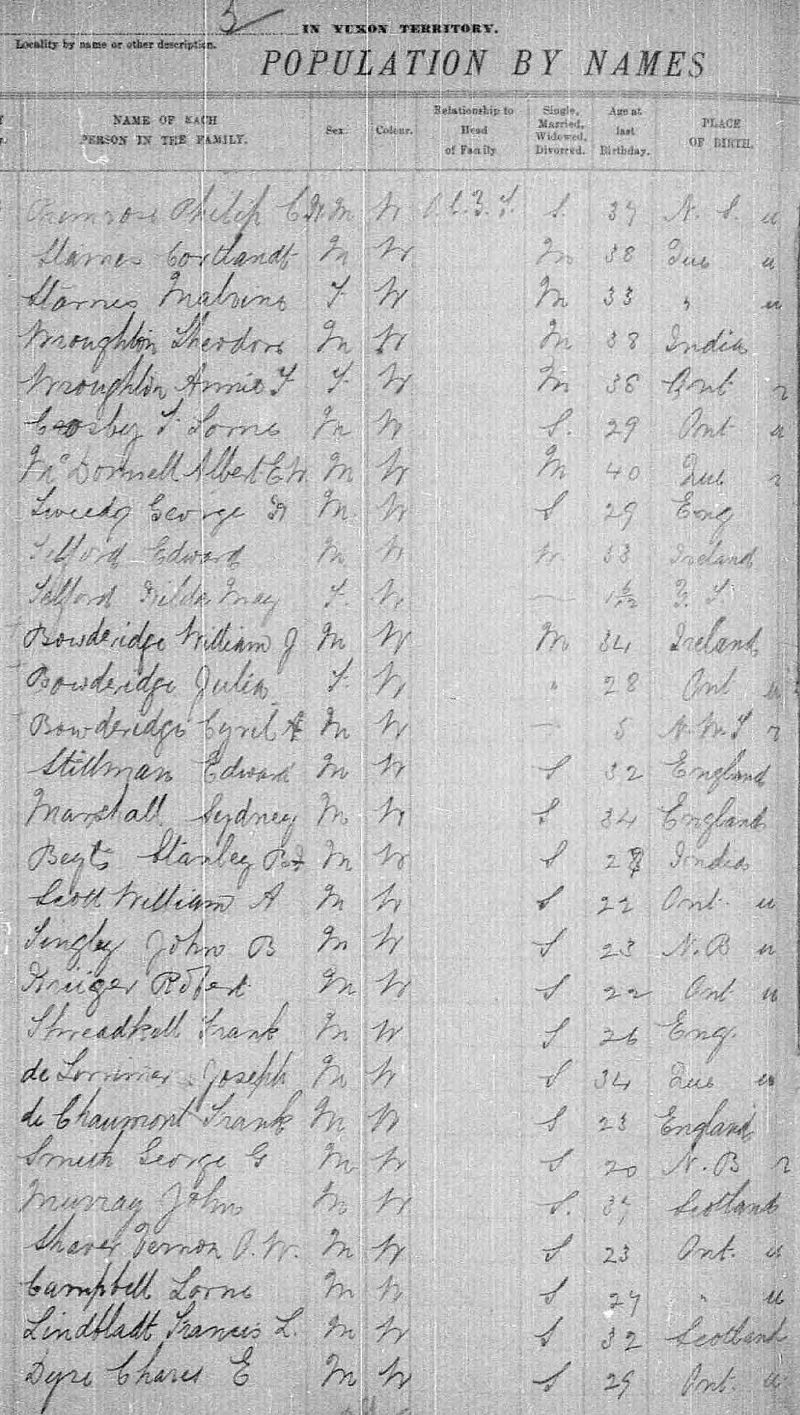 3
IN YUKON TERRITORY.
Locality by name or other description.
POPULATION BY NAMES
NAME OF EACH PERSON IN THE FAMILY. Sex. Colour. Relationship to Head of Family Single, Married, Widowed, Divorced. Age at last Birthday. PLACE OF BIRTH.
Primrose Philip C H M W S. 37 N. S. u
Starnes Cortlandt M W M 38 Que u
Starnes Malvina F W M 33 " u
Wroughton Theodore M W M 38 India
Wroughton Annie F F W M 36 Ont r
Crosby F Lorne M W S. 29 Ont u
McDonnell Albert E W. M W M 40 Que r
Tweedy George H M W S 29 Eng
Telford Edward M W W. 33 Ireland
Telford Hilda May F. W — Y. T
Bowderidge William J M W M 34 Ireland
Bowderidge Julia F W " 28 Ont u
Bowderidge Cyril A M W — 5 N.W.T r
Stillman Edward M W S 32 England
Marshall Sydney M W S 34 England
Begts Stanley M W S India
Scott William A M W S 22 Ont. u
Tingley John B M W S 23 N.B u
Kruger Robert M W S 22 Ont u
Threadkell Frank M W S 26 Eng.
de Lorrimer Joseph M W S 34 Que u
de Chaumont Frank M W S 23 England
Smith George G M W S 20 N.B r
Murray John M W S. 37 Scotland
Shaver Vernon O. W. M W S 23 Ont. u
Campbell Lorne M W S 27 " u
Lindbladt Francis L. M W S 32 Scotland
Dyre Chares E M W S 29 Ont. u